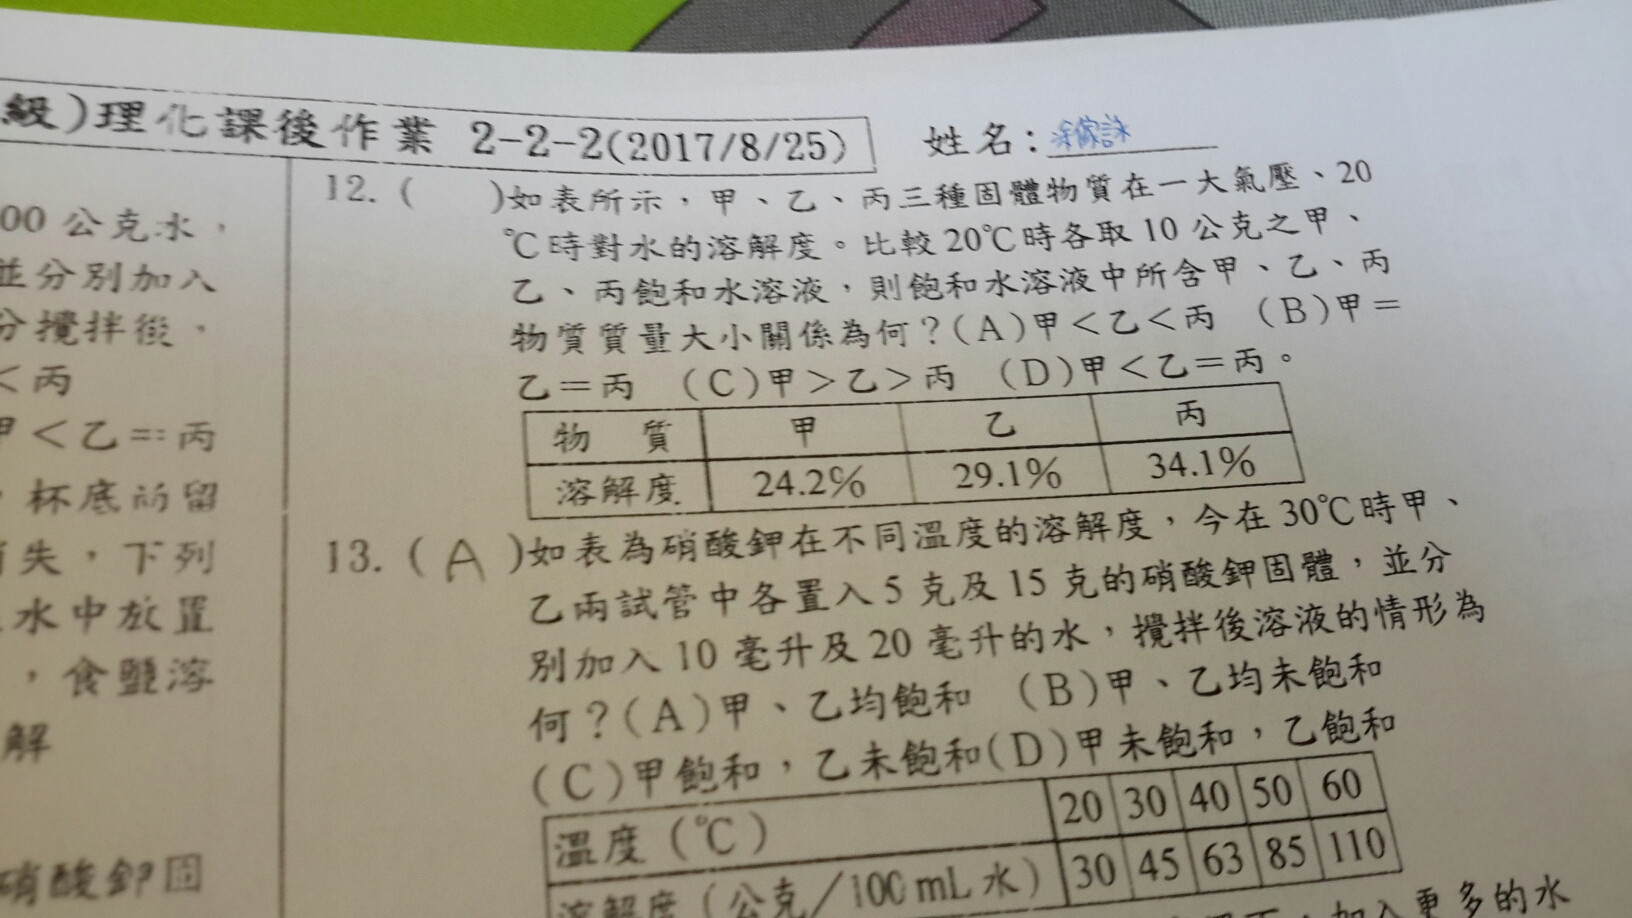 級)理化課後作業 2-2-2(2017/8/25)
姓名:
00公克水,
並分別加入
分攪拌後,
<丙
甲<乙=丙
,杯底所留
消失,下列
水中放置
,食鹽溶
解
硝酸鉀固
12.( )如表所示,甲、乙、丙三種固體物質在一大氣壓、20
℃時對水的溶解度。比較20℃時各取10公克之甲、
乙、丙飽和水溶液,則飽和水溶液中所含甲、乙、丙
物質質量大小關係為何?(A)甲<乙<丙 (B)甲=
乙=丙 (C)甲>乙>丙 (D)甲<乙=丙。
物質 甲 乙 丙
溶解度 24.2% 29.1% 34.1%
13.(A)如表為硝酸鉀在不同溫度的溶解度,今在30℃時甲、
乙兩試管中各置入5克及15克的硝酸鉀固體,並分
別加入10毫升及20毫升的水,攪拌後溶液的情形為
何?(A)甲、乙均飽和 (B)甲、乙均未飽和
(C)甲飽和,乙未飽和(D)甲未飽和,乙飽和
溫度(℃) 20 30 40 50 60
溶解度(公克/100mL水) 30 45 63 85 110
加入更多的水